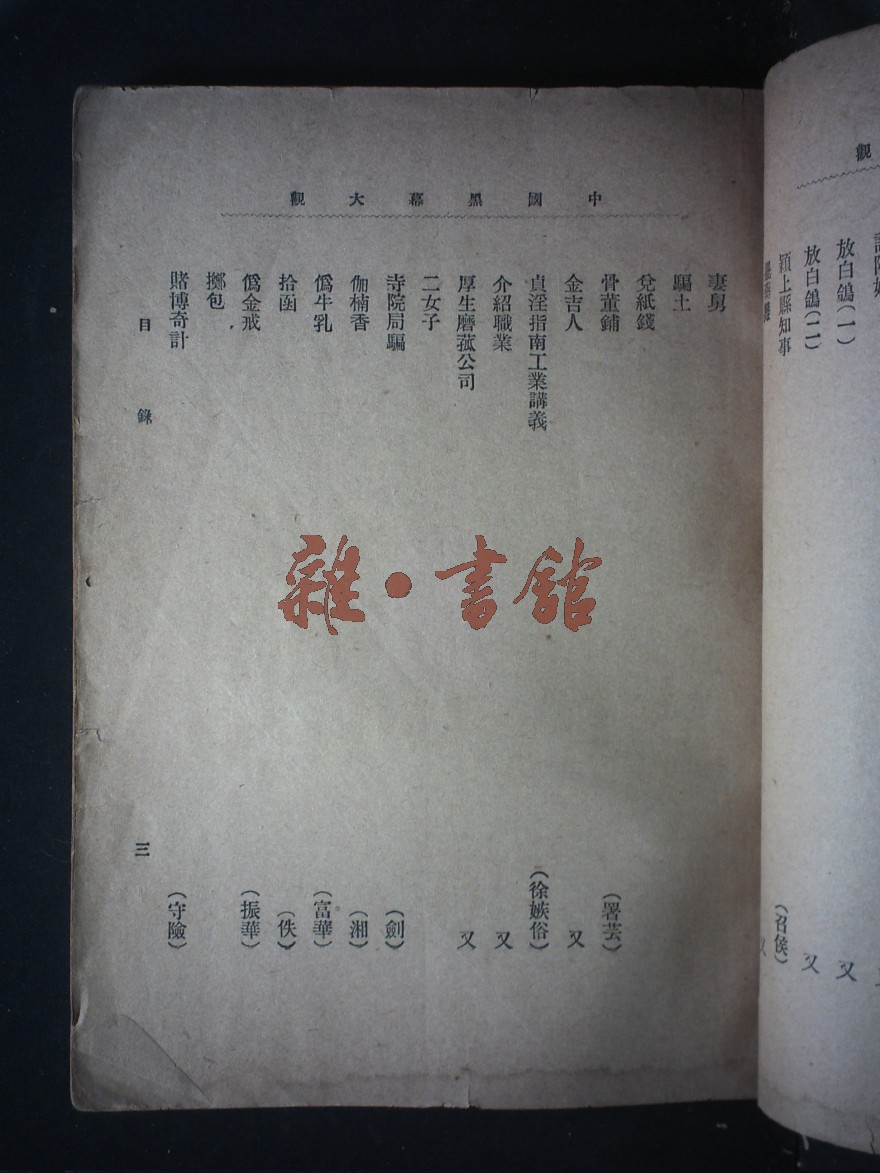 中國黑幕大觀
妻舅
騙土
兌紙錢
骨董鋪 （署芸）
金吉人 又
貞淫指南工業講義 （徐嫉俗）
介紹職業 又
厚生磨菰公司 又
二女子
寺院局騙 （劍）
伽楠香 （湘）
僞牛乳 （富華）
拾函 （佚）
僞金戒 （振華）
擲包
賭博奇計 （守險）
目錄
三
雜·書館
觀
又
放白鴿（一） 又
放白鴿（二） 又
潁上縣知事 （召侯）
又